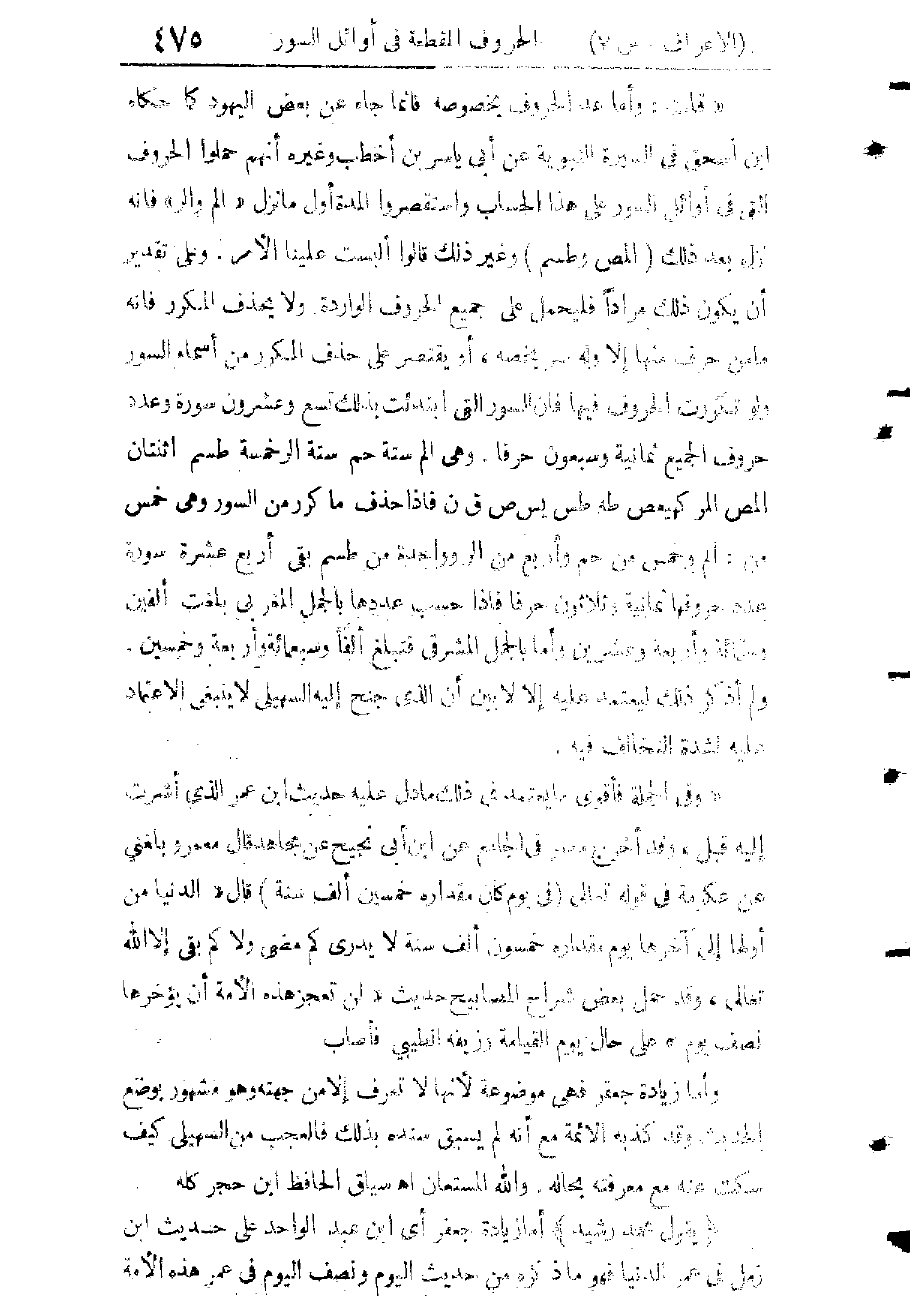 (الاعراف . س ٧) الحروف المقطعة فى أوائل السور ٤٧٥
« قلت : وأما عد الحروف بخصوصه فانما جاء عن بعض اليهود كما حكاه
ابن اسحق فى السيرة النبوية عن أبى ياسر بن أخطب وغيره أنهم حملوا الحروف
التى فى أوائل السور على هذا الحساب واستقصروا المدة أول مانزل « الم والر» فانه
نزل بعد ذلك ( المص وطسم ) وغير ذلك قالوا ألبست علينا الأمر . وعلى تقدير
أن يكون ذلك مراداً فليحمل على جميع الحروف الواردة ولا يحذف المكرر فانه
مامن حرف منها إلا وله سر يخصه ، أو يقتصر على حذف المكرر من أسماء السور
ولو تكررت الحروف فيها فان السور التى ابتدئت بذلك تسع وعشرون سورة وعدد
حروف الجميع ثمانية وسبعون حرفا . وهى الم ستة حم ستة الر خمسة طسم اثنتان
المص المر كهيعص طه طس يس ص ق ن فاذا حذف ما كرر من السور وهى خمس
من : الم وخمس من حم وأربع من الر وواحدة من طسم بقى أربع عشرة سورة
عدد حروفها ثمانية وثلاثون حرفا فاذا حسب عددها بالجمل المغربي بلغت ألفين
وستمائة وأربعة وعشرين وأما بالجمل المشرقى فتبلغ ألفاً وسبعمائة وأربعة وخمسين .
ولم أذكر ذلك ليعتمد عليه إلا لابين أن الذى جنح إليه السهيلى لاينبغى الاعتماد
عليه لشدة التخالف فيه .
« وفى الجملة فأقوى مايعتمد فى ذلك مادل عليه حديث ابن عمر الذي أشرت
إليه قبل ، وقد أخرج معمر فى الجامع عن ابن أبى نجيح عن مجاهد قال معمر وبلغني
عن عكرمة فى قوله تعالى (فى يوم كان مقداره خمسين ألف سنة ) قال « الدنيا من
أولها إلى آخرها يوم مقداره خمسون ألف سنة لا يدرى كم مضى ولا كم بقى إلا الله
تعالى ، وقد حمل بعض شراح المصابيح حديث « لن تعجز هذه الأمة أن يؤخرها
نصف يوم » على حال يوم القيامة وزيفه الطيبي فأصاب
وأما زيادة جعفر فهى موضوعة لأنها لا تعرف إلا من جهته وهو مشهور بوضع
الحديث وقد كذبه الائمة مع أنه لم يسبق سنده بذلك فالعجب من السهيلى كيف
سكت عنه مع معرفته بحاله . والله المستعان اهـ سياق الحافظ ابن حجر كله
( يقول محمد رشيد ) أما زيادة جعفر أى ابن عبد الواحد على حديث ابن
زمل فى عمر الدنيا فهو ماذكره من حديث اليوم ونصف اليوم فى عمر هذه الأمة